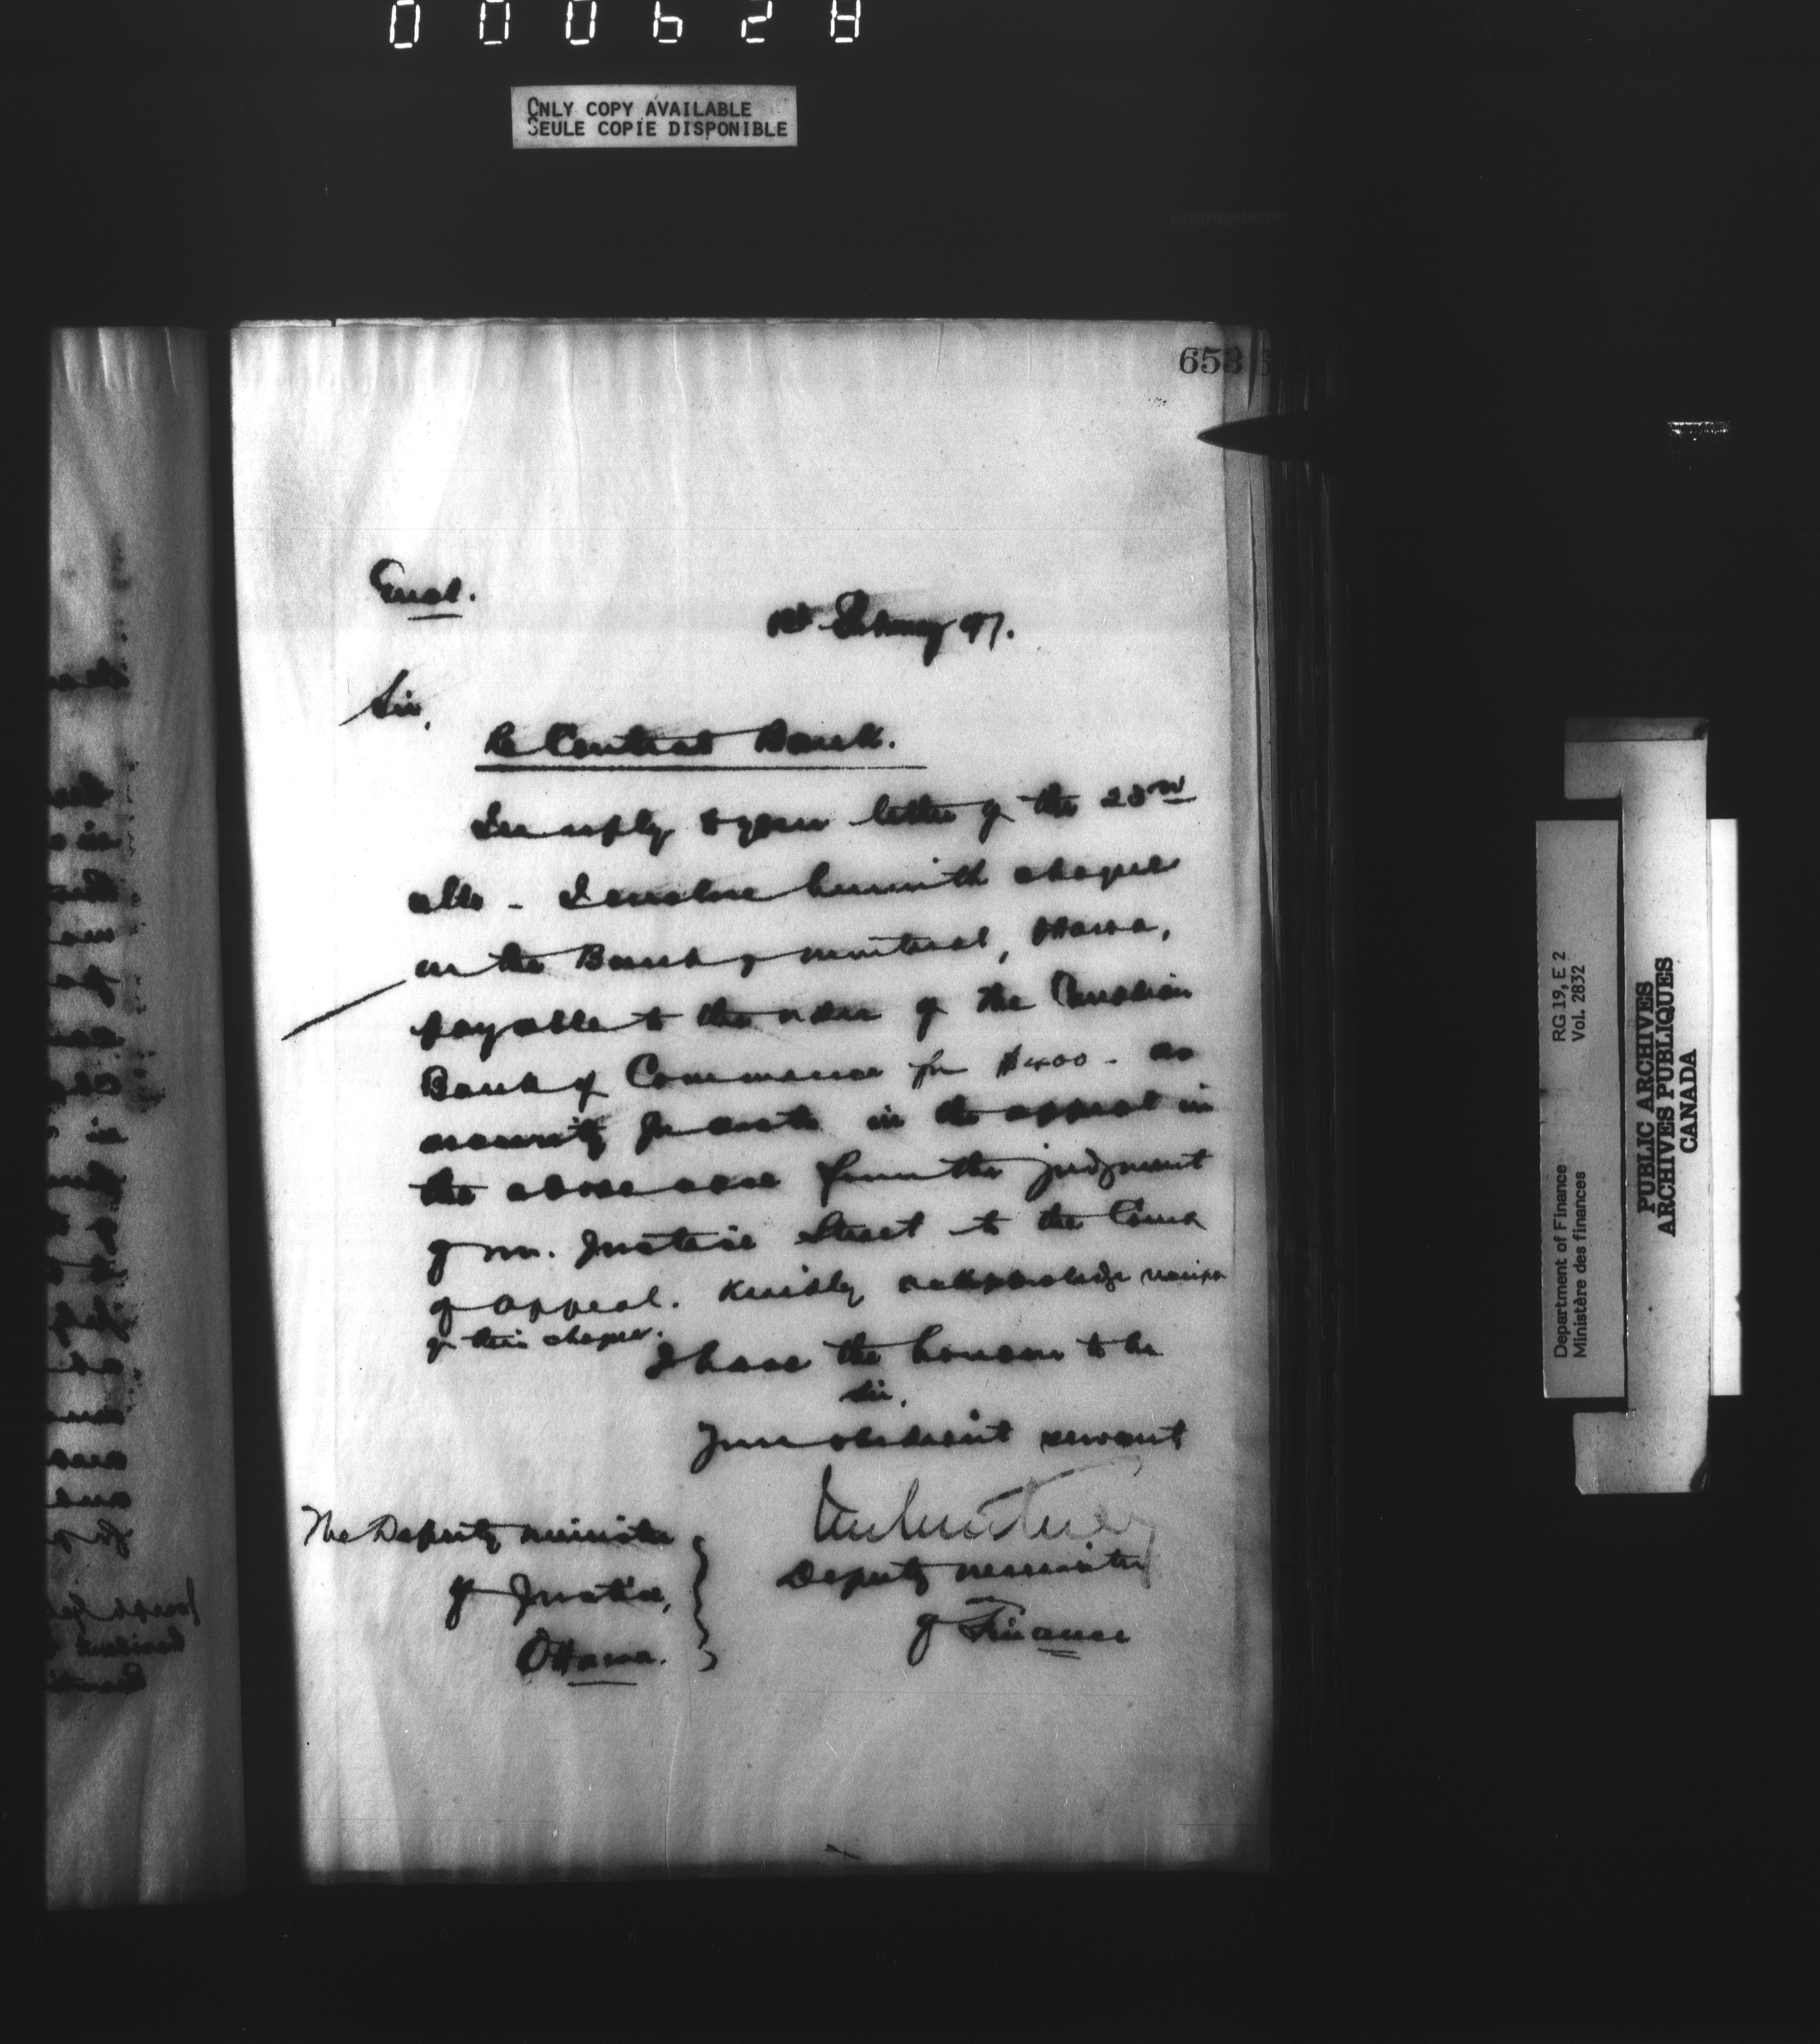 000628
ONLY COPY AVAILABLE
SEULE COPIE DISPONIBLE
653
Encl.
1st February 97.
Sir,
Re Central Bank.
In reply to your letter of the 23rd
ulto - I enclose herewith cheque
on the Bank of Montreal, Ottawa,
payable to the order of the Canadian
Bank of Commerce for $400 - as
security for costs in the appeal in
the above case from the judgment
of Mr. Justice Street to the Court
of Appeal. Kindly acknowledge receipt
of this cheque.
I have the honour to be
Sir,
Your obedient servant
Deputy Minister
of Finance
The Deputy Minister
of Justice,
Ottawa.
Department of Finance RG 19, E 2
Ministère des finances Vol. 2832
PUBLIC ARCHIVES
ARCHIVES PUBLIQUES
CANADA